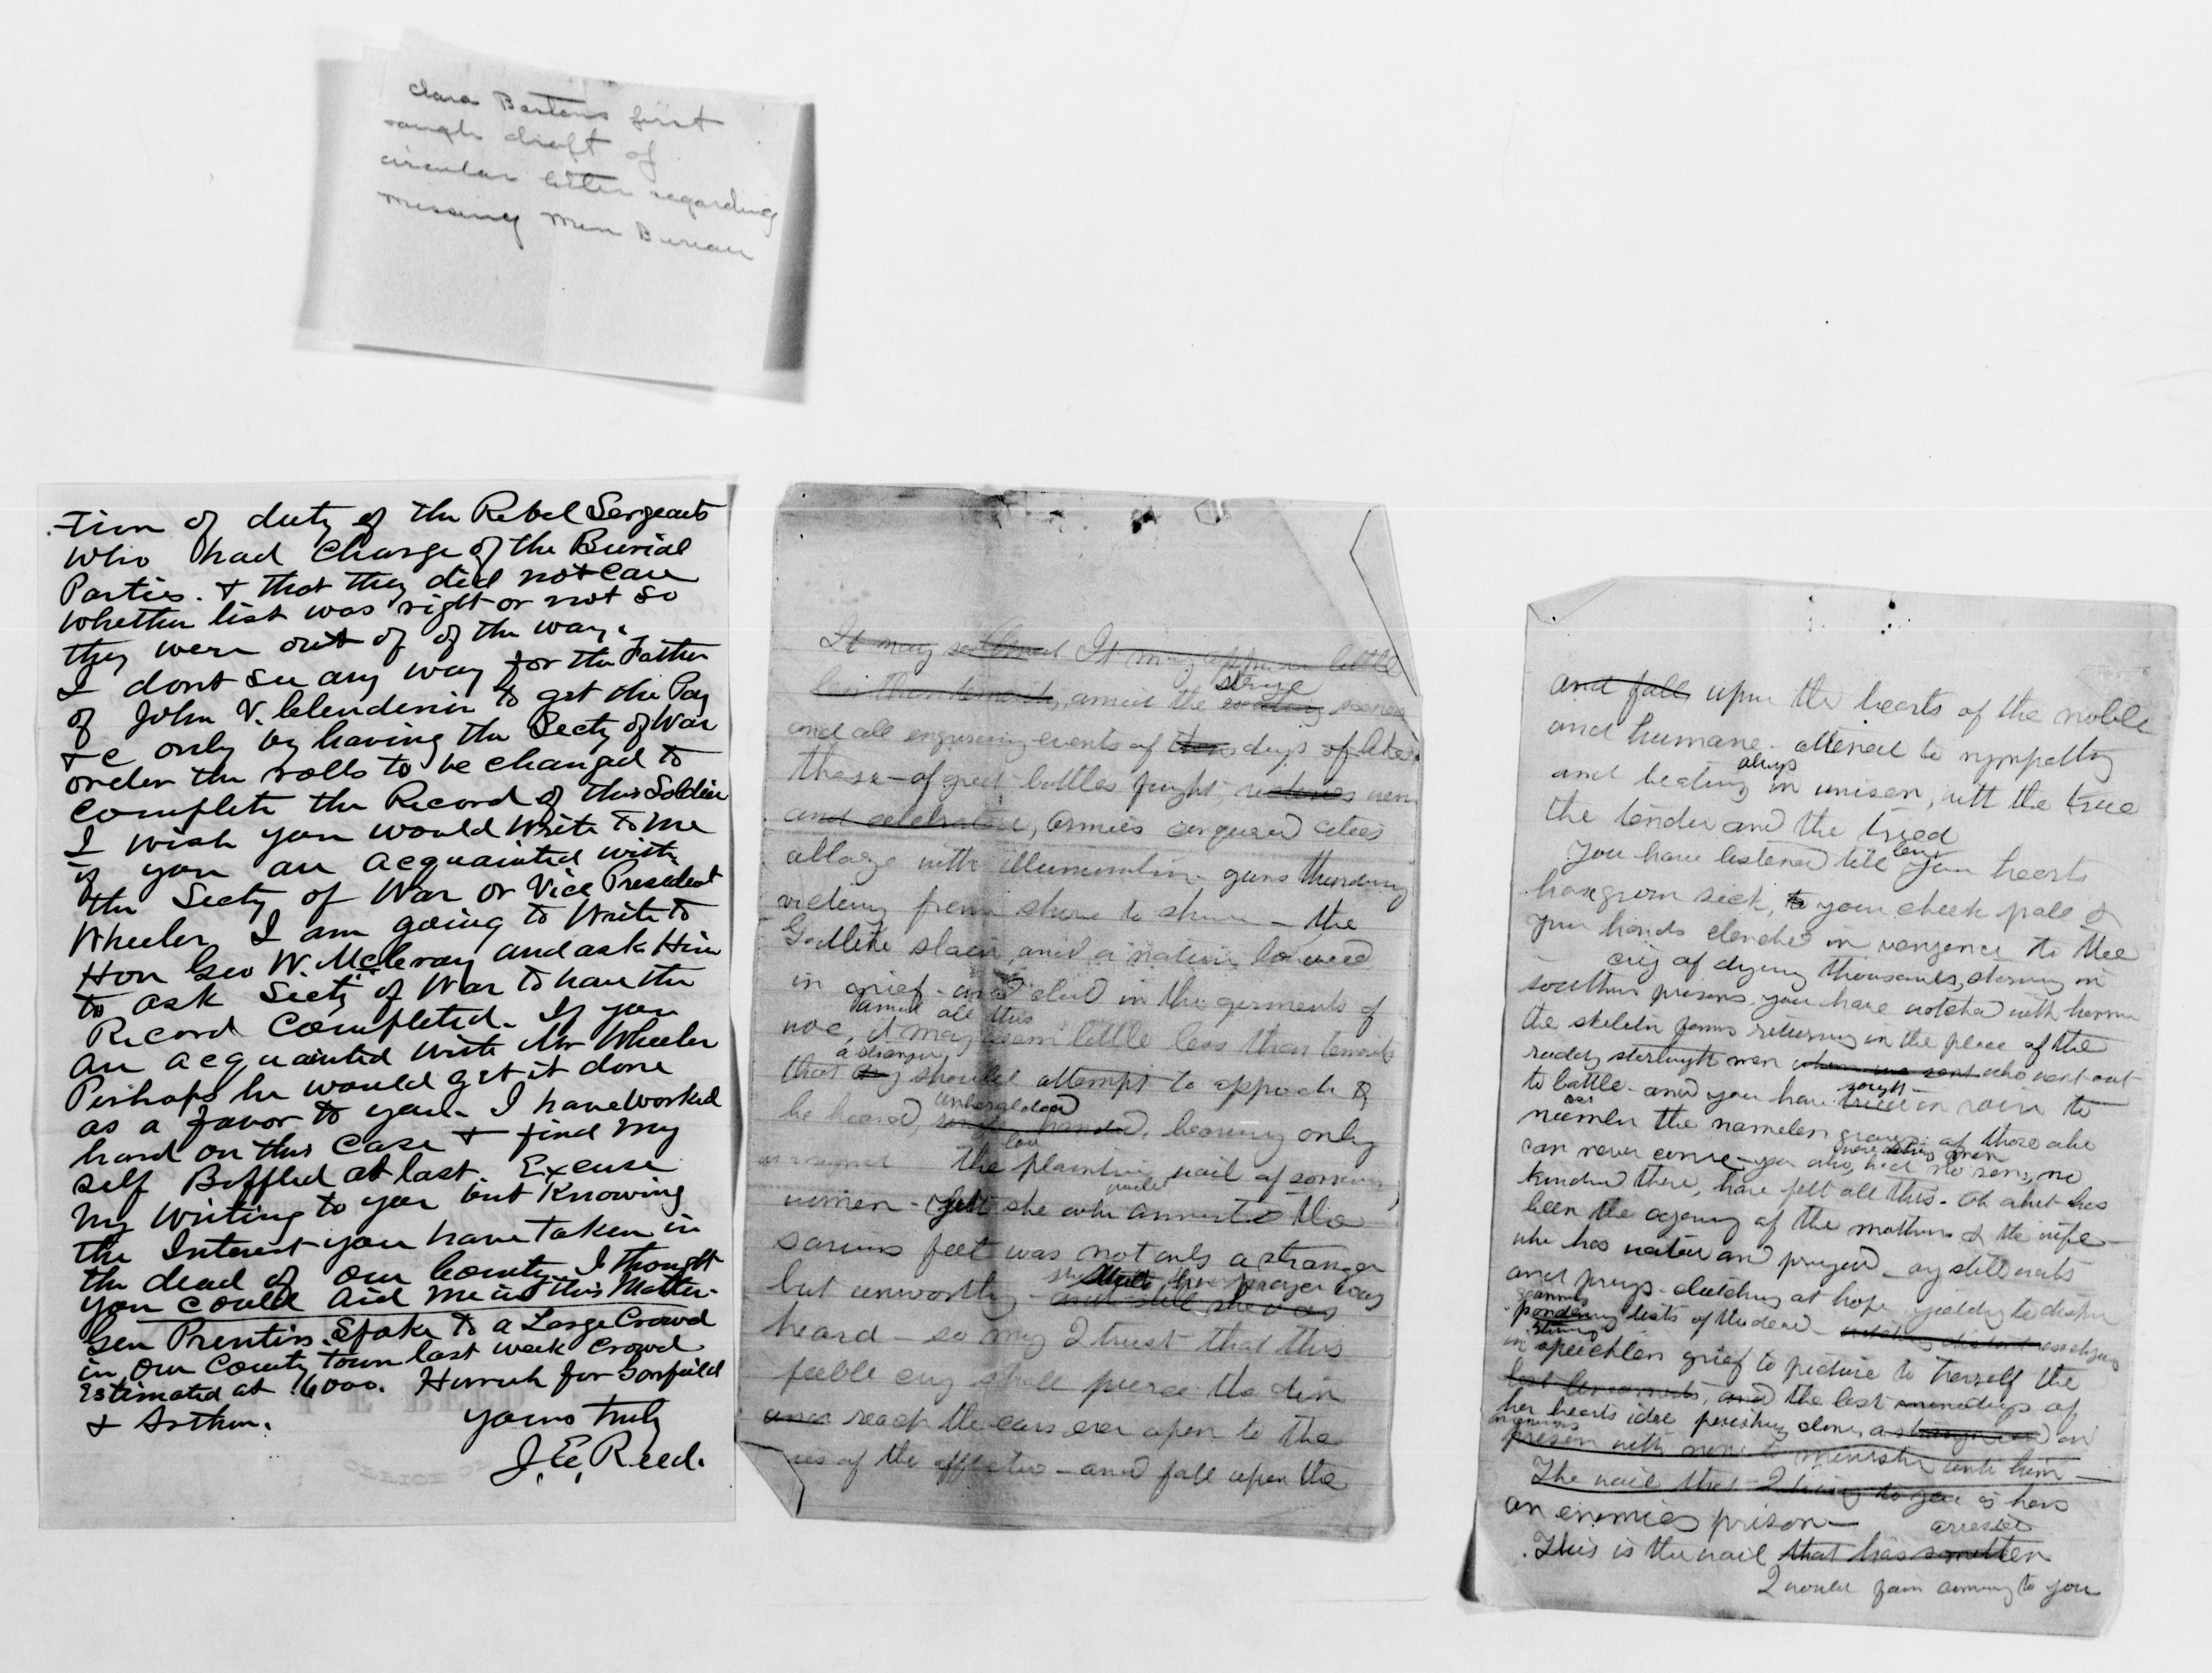 Clara Bartons first
rough draft of
circular letter regarding
missing men Bureau
-tion of duty of the Rebel Sergeants
who had Charge of the Burial
Parties. & that they did not Care
whether list was right or not so
they were out of of the way.
I dont see any way for the Father
of John V. Clendenin to get the Pay
&c only by having the Secty of War
order the rolls to be changed to
complete the Record of this Soldier
I wish you would Write to me
if you are acquainted with
the Secty of War or Vice President
Wheeler. I am going to Write to
Hon Geo W. McCrary and ask Him
to ask Secty of War to have the
Record Completed. If you
are acquainted write Mr Wheeler
Perhaps he would get it done
as a favor to you. I have worked
hard on this Case & find my
self Baffled at last. Excuse
my writing to you but Knowing
the Interest you have taken in
the dead of our County I thought
you could aid me in this Matter.
Gen Prentiss Spoke to a Large Crowd
in our County town last week Crowd
Estimated at 6000. Hurrah for Garfield
& Arthur.
Yours Truly
J. E. Reed.
It may It may appear little
less than temerity, amid the scenes
and all engrossing events of days of like
these - of great battles fought,
and celebrated, armies conquered cities
ablaze with illumination - guns thundering
victory from shore to shore - the
Godlike slain, and a nation bowed
in grief - and clad in the garments of
amid all this
woe, it may seem little less than temerity
a stranger
that should attempt to approach &
unheralded
be heard, bearing only
low
the plaintive wail of sorrowing
women - yet she who the
saviors feet was not only a stranger
but unworthy - her prayer was
and still she was
heard - so may I trust that this
feeble cry shall pierce the din
and reach the ears ever open to the
cries of the afflicted - and fall upon the
and fall upon the hearts of the noble
and humane - attuned to sympathy
always
and beating in unison, with the true
the tender and the tried
You have listened till your hearts
have grown sick, to your cheek pale &
your hands clenched in vengence to the
cry of dying thousands, starving in
southern prisons, you have watched with horror
the skeleton forms returning in the place of the
ruddy men whom we sent who went out
sought
to battle - and you have tried in vain to
number the nameless graves of those who
can never come - you who, had no sons, no
kindred there, have felt all this - Oh what has
been the agony of the mother & the wife -
who has waited and prayed - ay still waits
and prays - clutching at hope yielding to despair
scanning
pondering lists of the dead
in speechless grief to picture to herself the
and the last of
her hearts idol perishing alone, in
prison with none to minister unto him -
The wail that I bring to you is hers
an enemies prison -
arrested
This is the wail that has smitten
I would fain to you